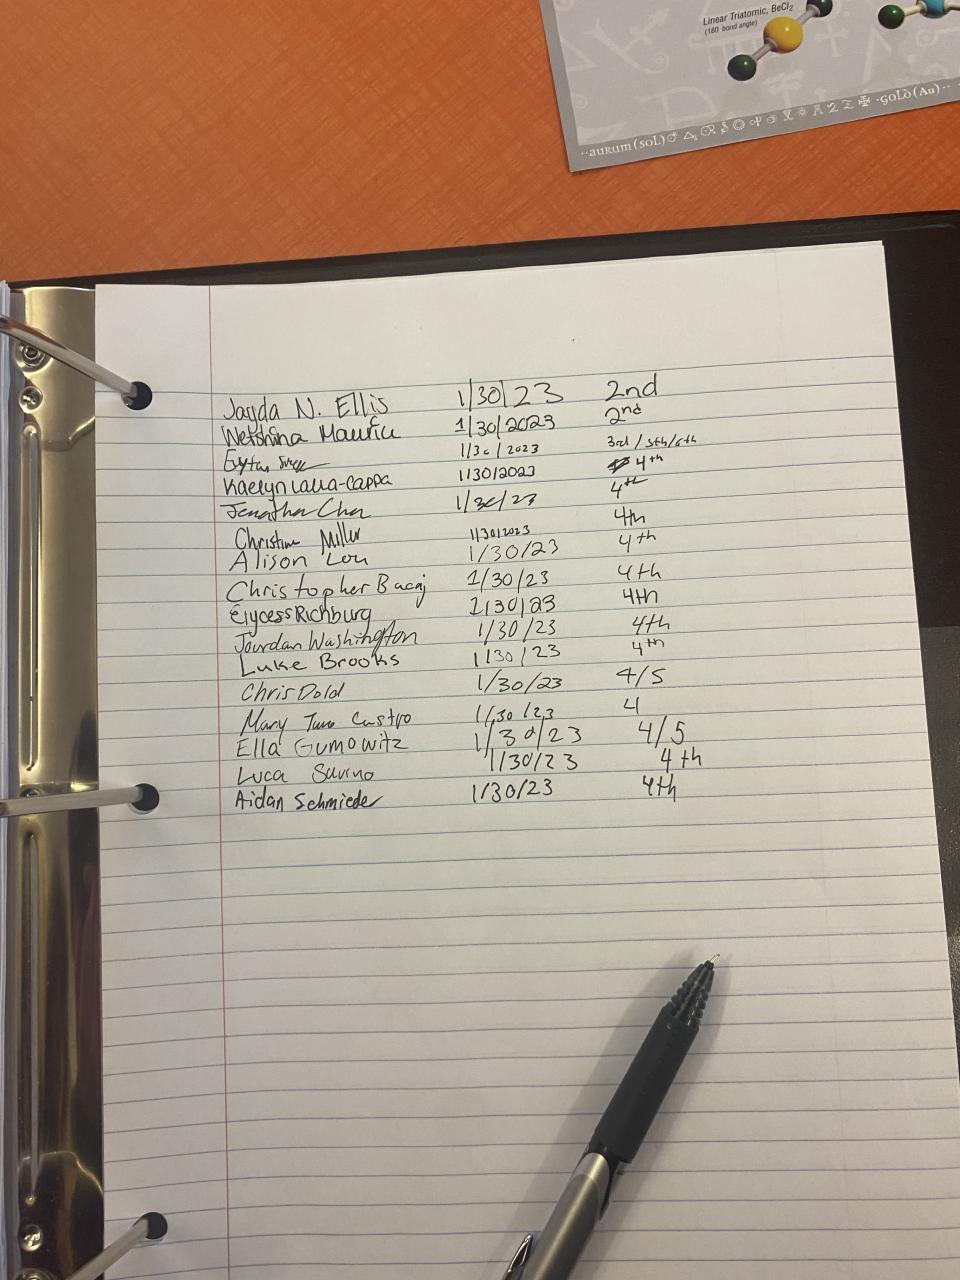 Linear Triatomic, BeCl2
(180 bond angle)
··aurum (soL) ·goLD (Au)··
Jayda N. Ellis 1/30/23 2nd
Wetshina Maurice 1/30/2023 2nd
1/30/2023 3rd/5th/6th
Kaelyn Lalla-Cappa 1/30/2023 4th
Jonathan Chen 1/30/23 4th
Christine Miller 1/30/2023 4th
Alison Lou 1/30/23 4th
Christopher Bacaj 1/30/23 4th
Eiycess Richburg 1/30/23 4th
Jourdan Washington 1/30/23 4th
Luke Brooks 1/30/23 4th
Chris Dold 1/30/23 4/5
Mary Castro 1/30/23 4
Ella Gumowitz 1/30/23 4/5
Luca Savino 1/30/23 4th
Aidan Schmieder 1/30/23 4th